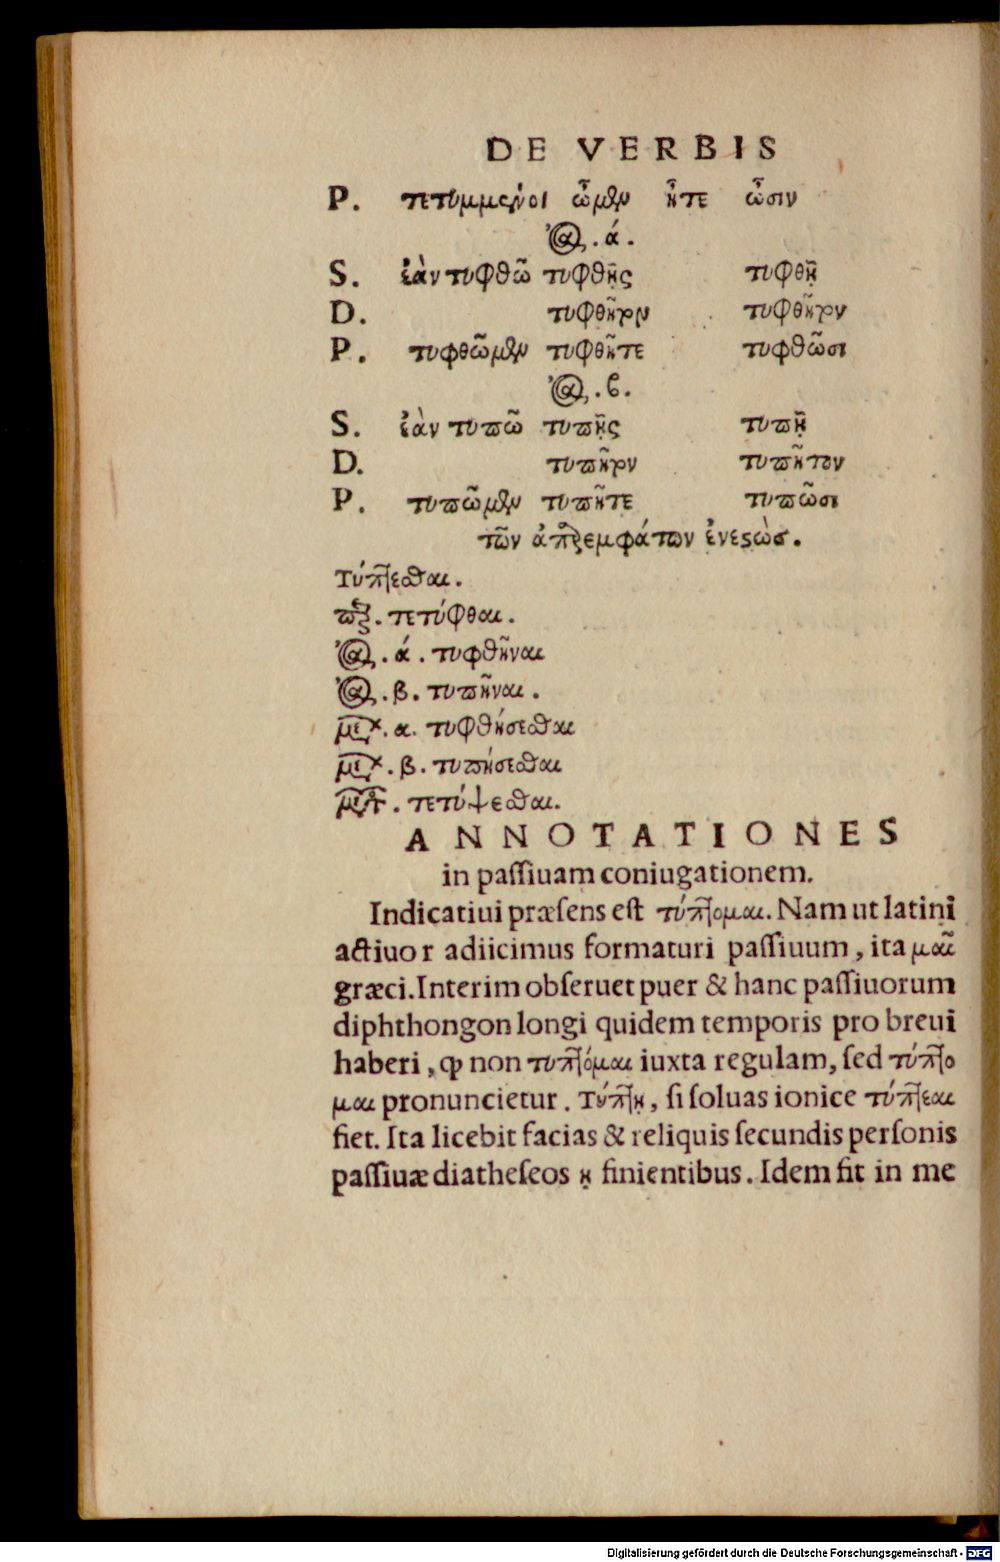 DE VERBIS
P. τετυμμένοι ὦμεν ἦτε ὦσιν
ἀόρ. ά.
S. ἐὰν τυφθῶ τυφθῇς τυφθῇ
D. τυφθῆτον τυφθῆτον
P. τυφθῶμεν τυφθῆτε τυφθῶσι
ἀόρ. β.
S. ἐὰν τυπῶ τυπῇς τυπῇ
D. τυπῆτον τυπῆτον
P. τυπῶμεν τυπῆτε τυπῶσι
τῶν ἀπαρεμφάτων ἐνεϛὼσ.
τύπτεσθαι.
παρ. τετύφθαι.
ἀόρ. ά. τυφθῆναι
ἀόρ. β. τυπῆναι.
μελ. α. τυφθήσεσθαι
μελ. β. τυπήσεσθαι
τετύψεσθαι.
ANNOTATIONES
in paſſiuam coniugationem.
Indicatiui præſens eſt τύπτομαι. Nam ut latini
actiuo r adiicimus formaturi paſſiuum, ita μαι
græci. Interim obſeruet puer & hanc paſſiuorum
diphthongon longi quidem temporis pro breui
haberi, ꝙ non τυπτόμαι iuxta regulam, ſed τύπτο
μαι pronuncietur. Τύπτῃ, ſi ſoluas ionice τύπτεαι
fiet. Ita licebit facias & reliquis ſecundis perſonis
paſſiuæ diatheſeos ῃ finientibus. Idem fit in me
Digitalisierung gefördert durch die Deutsche Forschungsgemeinschaft - DFG